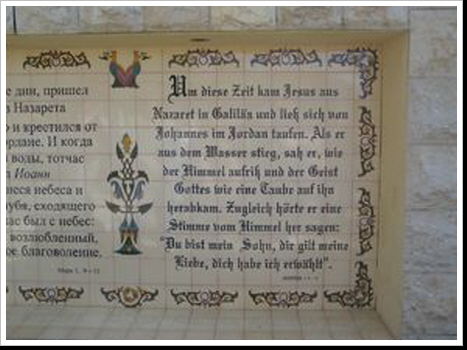 е дни, пришел
з Назарета
о и крестился от
ордане. И когда
воды, тотчас
л Иоанн
иеся небеса и
лубя, сходящего
ас был с небес:
возлюбленный,
ое благоволение.
Марк 1, 9-11
Um diese Zeit kam Jesus aus
Nazaret in Galiläa und ließ sich von
Johannes im Jordan taufen. Als er
aus dem Wasser stieg, sah er, wie
der Himmel aufriß und der Geist
Gottes wie eine Taube auf ihn
herabkam. Zugleich hörte er eine
Stimme vom Himmel her sagen:
"Du bist mein Sohn, die gilt meine
Liebe, dich habe ich erwählt".